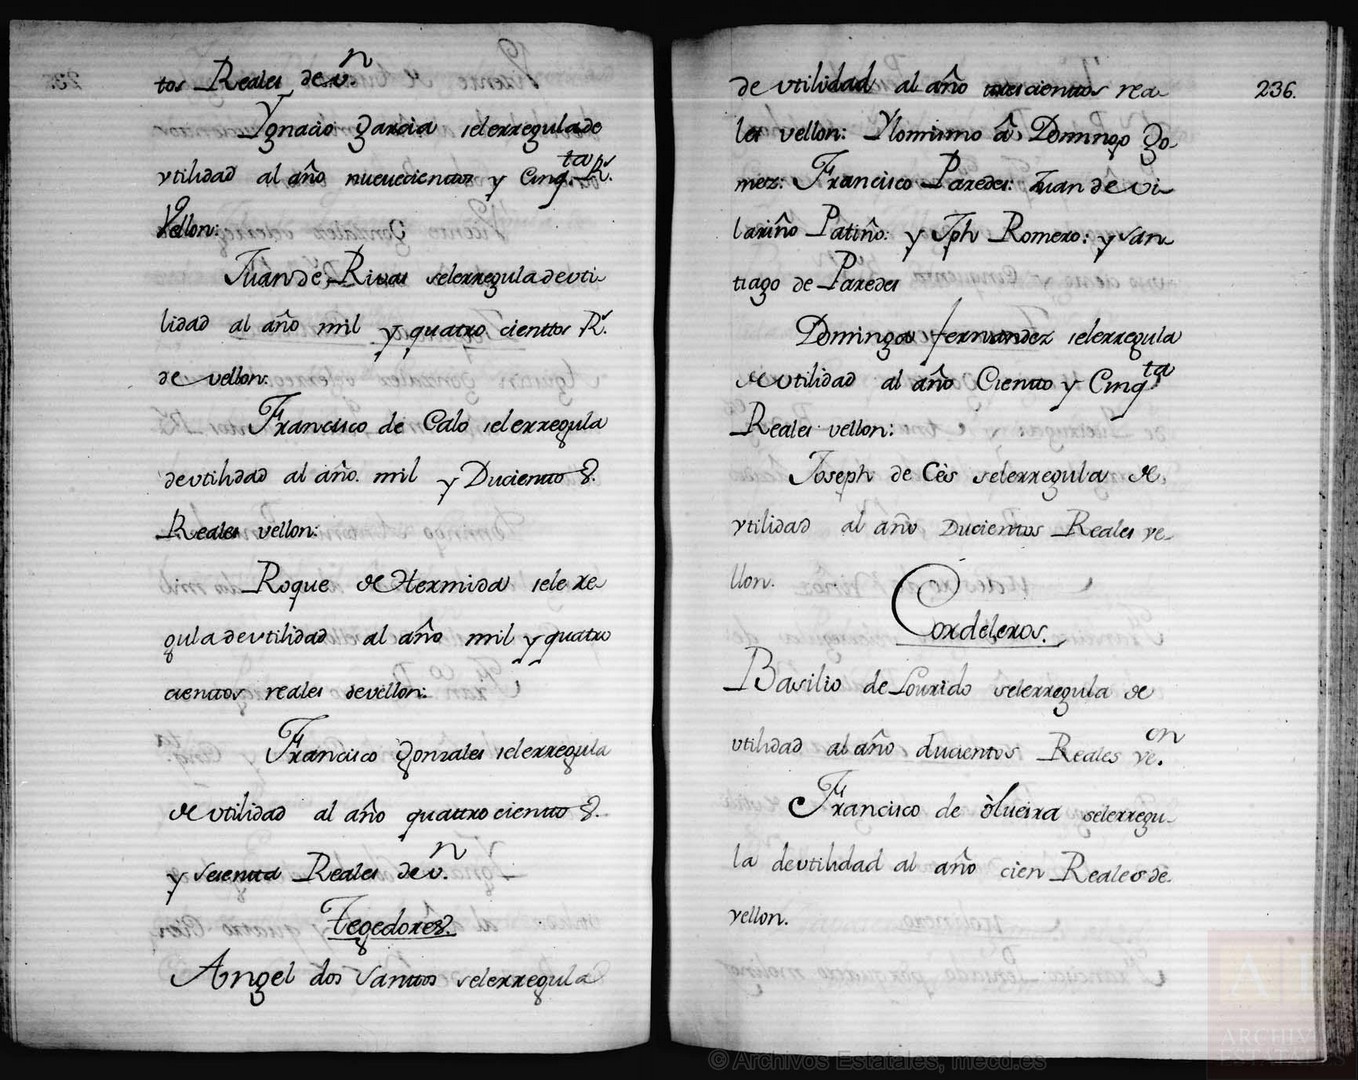 tos Reales de v.n
Ygnacio Garcia selerregula de
vtilidad al año nuevecientos y Cinq.ta R.s
Vellon:
Juan de Rivas selerregula de vti-
lidad al año mil y quatro cienttos R.s
de vellon:
Francisco de Calo selerregula
de vtilidad al año. mil y Ducientos
Reales vellon:
Roque de Hermida sele re-
gula de vtilidad al año mil y quatro
cienttos reales de vellon:
Francisco Gonzales selerregula
de vtilidad al año quattro cienttos
y setenta Reales de v.n
Tegedores.
Angel dos Santtos selerregula
236.
de vtilidad al año trescienttos rea-
les vellon: Ylomismo â, Domingo Go-
mez: Francisco Paredes: Juan de Vi-
lariño Patiño: y Jph Romero: y San-
tiago de Paredes
Domingos fernandez selerregula
de vtilidad al año Ciento y Cinq.ta
Reales vellon:
Joseph de Cès selerregula de,
vtilidad al año Ducientos Reales ve-
llon.
Cordeleros.
Basilio de Lourido selerregula de
vtilidad al año ducientos Reales ve.on
Francisco de òlveira selerregu-
la de vtilidad al año cien Reales de
vellon.
© Archivos Estatales, mecd.es
ARCHIVOS
ESTATALES